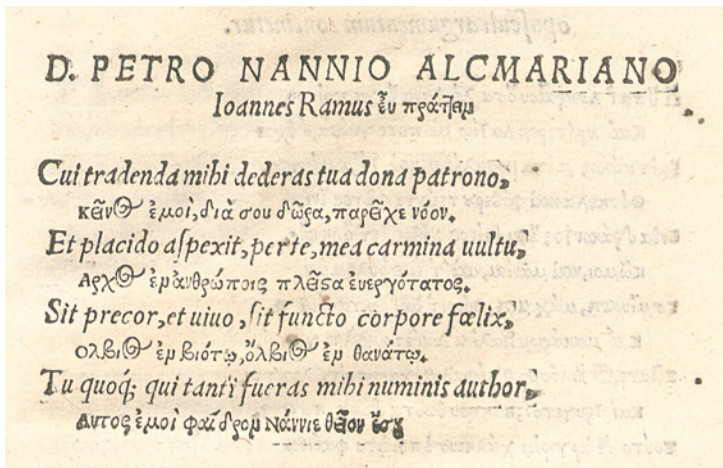 D. PETRO NANNIO ALCMARIANO
Ioannes Ramus εὖ πράτ[τ]ειν
Cui tradenda mihi dederas tua dona patrono,
κεῖνος ἐμοὶ, διὰ σου δῶρα, παρεῖχε νόον.
Et placido aſpexit, per te, mea carmina uultu,
Αρχος ἐν ἀνθρώποις πλεῖςα ἐυεργότατος.
Sit precor, et uiuo, ſit functo corpore fœlix,
Ολβιος ἐν βιότῳ, ὄλβιος ἐν θανάτῳ.
Tu quoq; qui tanti fueras mihi numinis author,
Αυτος ἐμοὶ φαῖδρον Νάννιε θεῖον